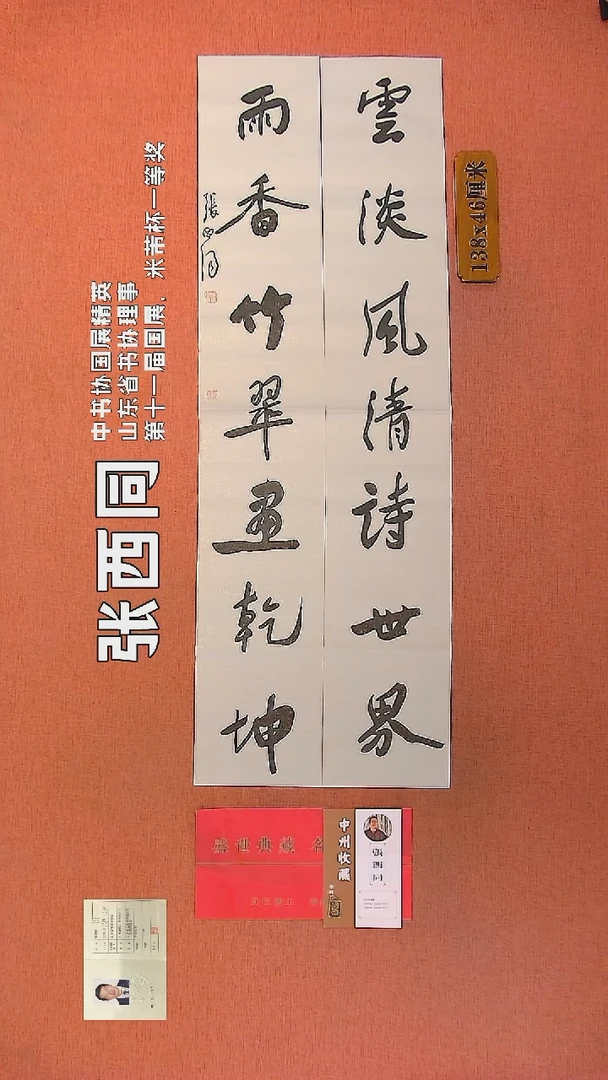 雲淡風清詩世界
雨香竹翠畫乾坤
張西同
138x46厘米
中书协国展精英
山东省书协理事
第十一届国展、米芾杯一等奖
张西同
盛世典藏 名
中州收藏
張西同